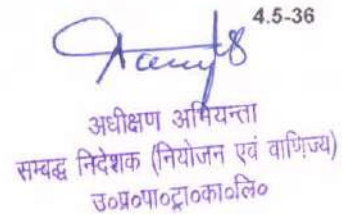 4.5-36
अधीक्षण अभियन्ता
सम्बद्ध निदेशक (नियोजन एवं वाणिज्य)
उ०प्र०पा०ट्रा०का०लि०